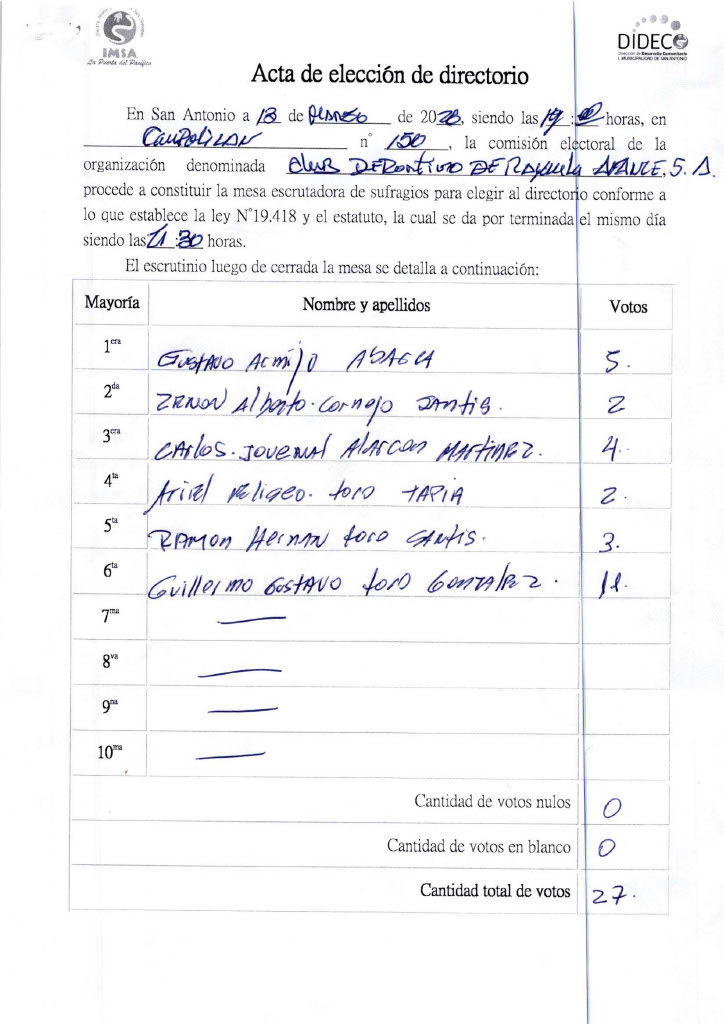 IMSA
La Puerta del Pacífico
DIDECO
Dirección de Desarrollo Comunitario
I. MUNICIPALIDAD DE SAN ANTONIO
Acta de elección de directorio
En San Antonio a 13 de Marzo de 2023, siendo las 19:00 horas, en
Caupolican n° 150, la comisión electoral de la
organización denominada Club DEPORTIVO DE Rayuela AVANCE, S.A.
procede a constituir la mesa escrutadora de sufragios para elegir al directorio conforme a
lo que establece la ley N°19.418 y el estatuto, la cual se da por terminada el mismo día
siendo las 21:30 horas.
El escrutinio luego de cerrada la mesa se detalla a continuación:
Mayoría Nombre y apellidos Votos
1cra GUSTAVO Acmijo ABACCA 5.
2da ZENON Alberto. Cornejo SANtis. 2
3cra CARlOS. JOUENAL AlARCON MARTINEZ. 4.
4ta Ariel toro TAPIA 2.
5ta RAMON HerNAN toro SANtis. 3.
6ta Guillermo GUSTAVO toro GONZALEZ. 11.
7ma
8va
9na
10ma
Cantidad de votos nulos 0
Cantidad de votos en blanco 0
Cantidad total de votos 27.